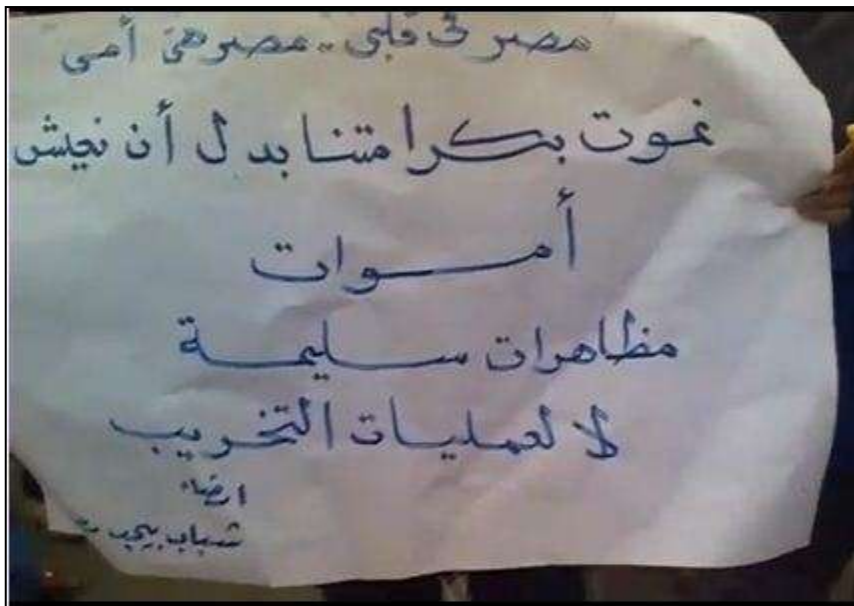 مصر في قلبى .. مصر هى أمى
نموت بكرامتنا بدل أن نعيش
أمـــوات
مظاهرات سليمة
لا لعمليات التخريب
امضاء
شباب بيحب